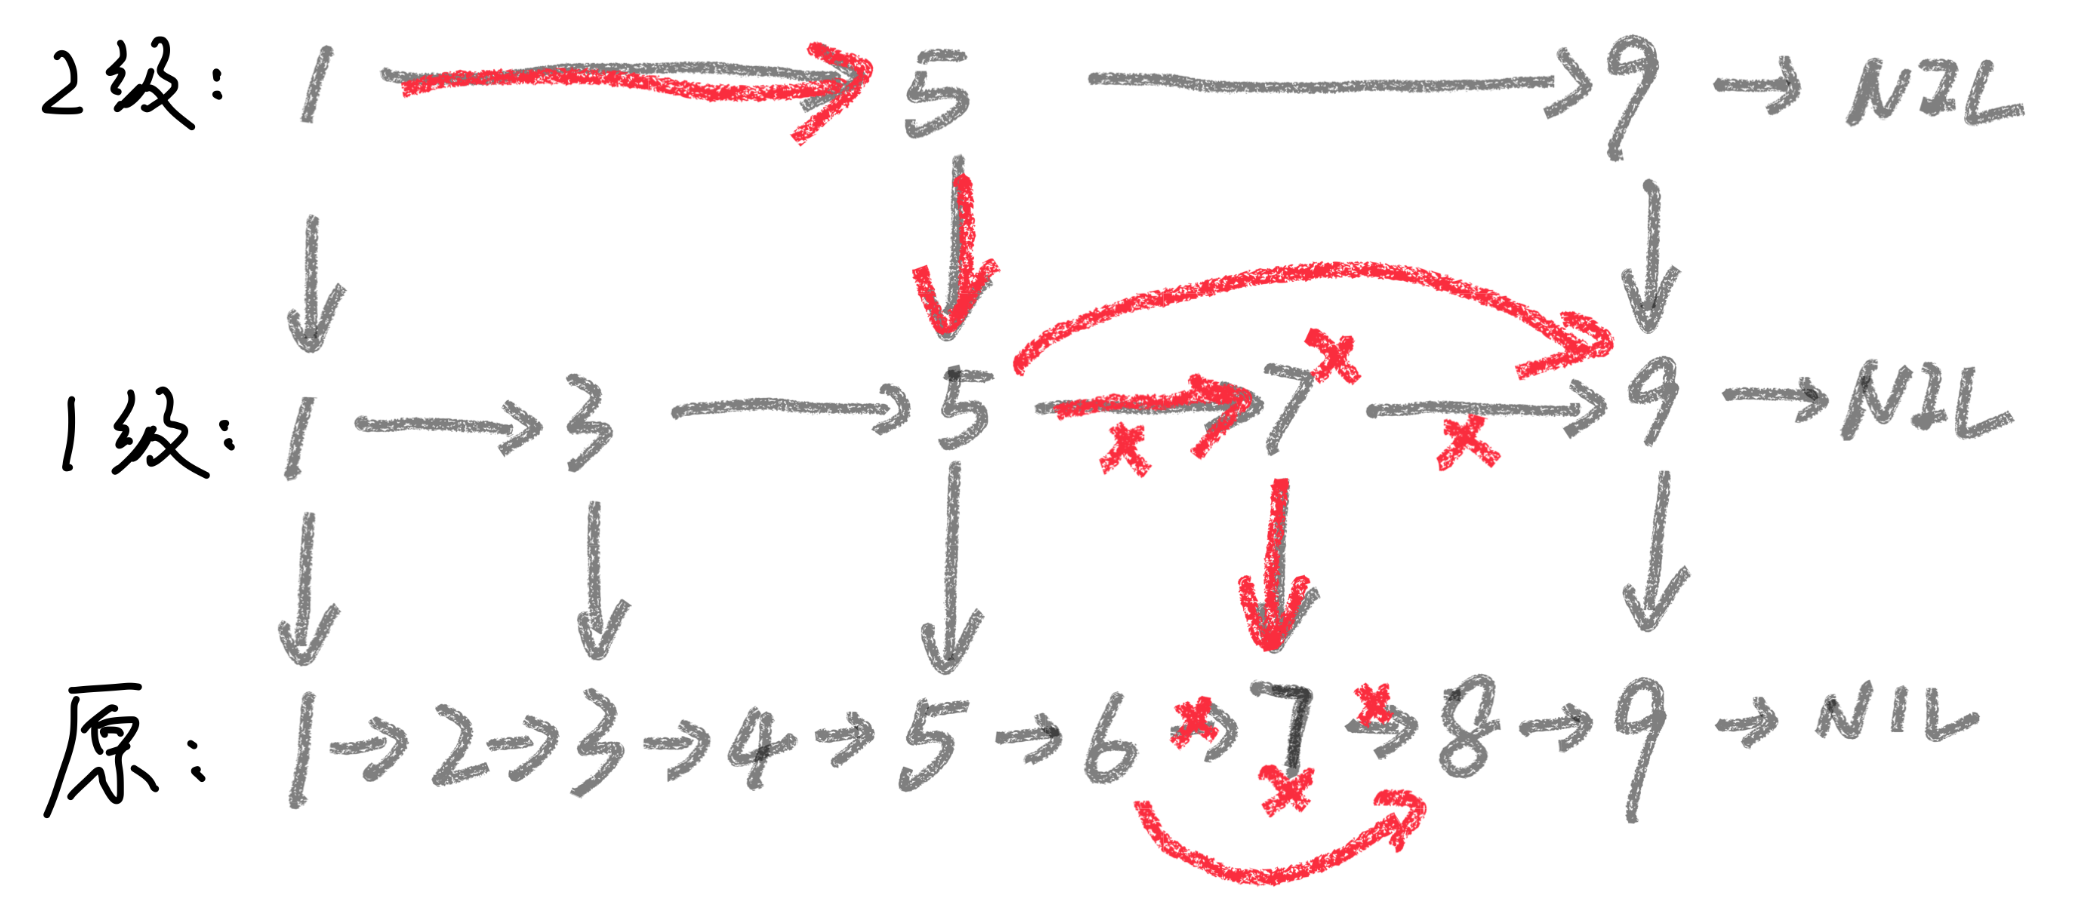 2级: 1 → 5 → 9 → NIL
1级: 1 → 3 → 5 → 7 → 9 → NIL
原: 1 → 2 → 3 → 4 → 5 → 6 → 7 → 8 → 9 → NIL